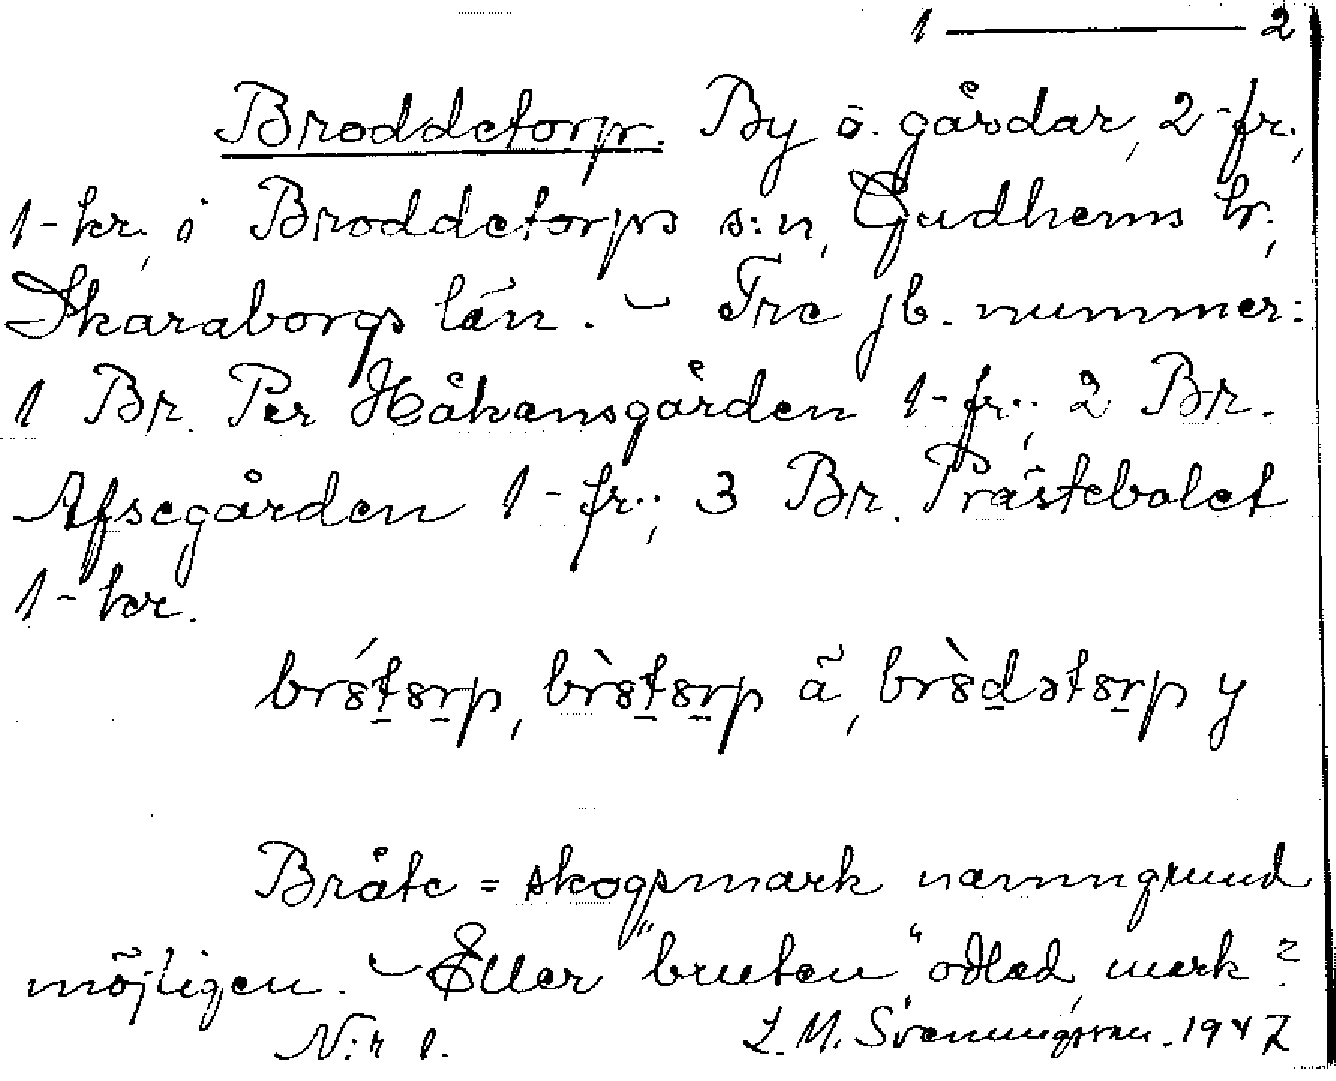 1 — 2
Broddetorp. By o. gårdar, 2-fr.,
1-kr., i Broddetorps s:n, Gudhems hr.,
Skaraborgs län. – Tre jb. nummer:
1 Br. Per Håkansgården 1-fr.; 2 Br.
Afsegården 1-fr.; 3 Br. Prästebolet
1-kr.
Bråte = skogsmark namngrund
möjligen. – Eller "bruten" odlad mark?
N:r 1. L. M. Svenungsson. 1947